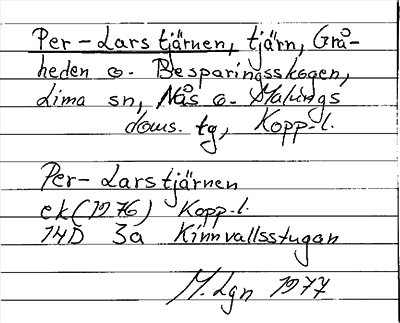 Per-Lars tjärnen, tjärn, Grå-
heden o. Besparingsskogen,
Lima sn, Nås o. Malungs
doms. tg, Kopp-l.
Per-Lars tjärnen
ek (1976) Kopp-l.
14D 3a Kinnvallsstugan
M. Lgn 1977